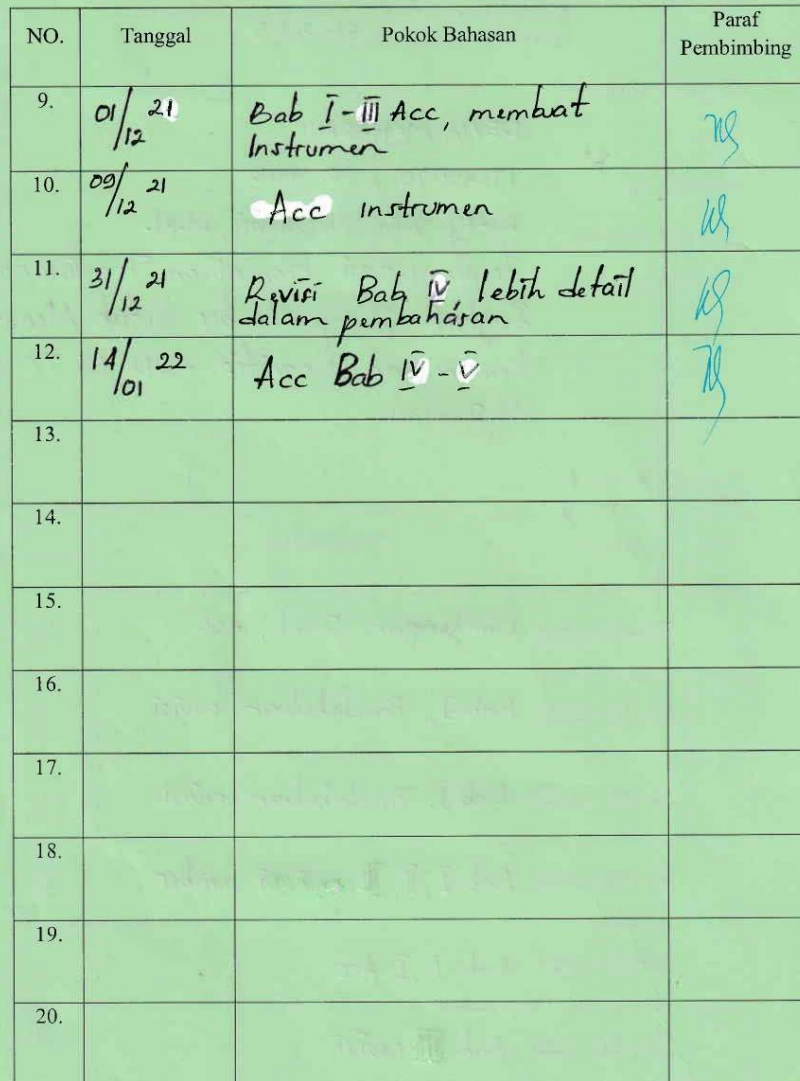 NO. Tanggal Pokok Bahasan Paraf Pembimbing
9. 01/12 21 Bab I - III Acc, membuat
Instrumen
10. 09/12 21 Acc instrumen
11. 31/12 21 Revisi Bab IV, lebih detail
dalam pembahasan
12. 14/01 22 Acc Bab IV - V
13.
14.
15.
16.
17.
18.
19.
20.